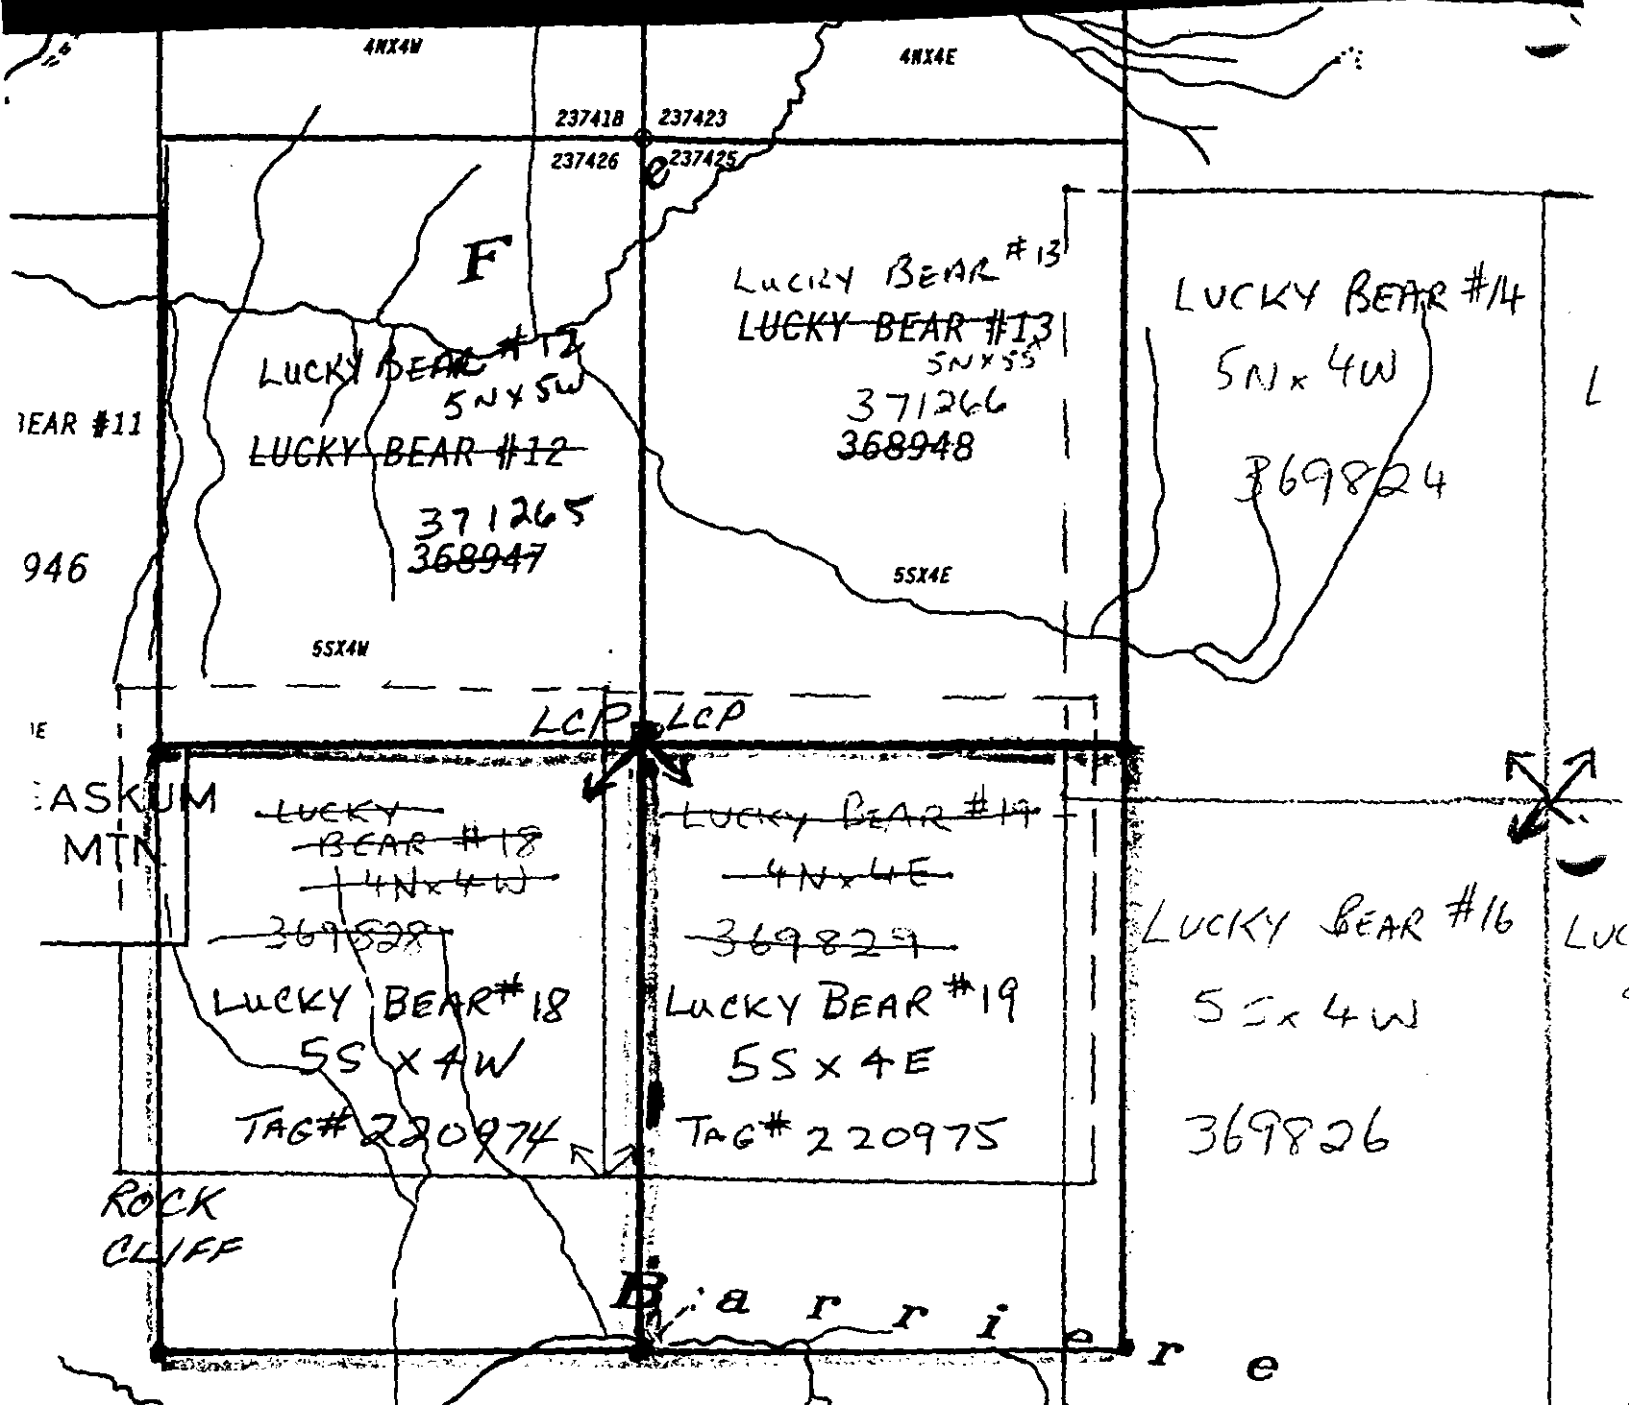 4NX4W
4NX4E
237418
237423
237426
237425
e
F
LUCKY BEAR #13
LUCKY BEAR #13
5N X 5S
371266
368948
LUCKY BEAR #14
5N x 4W
369824
L
LUCKY BEAR #12
5N X 5W
LUCKY BEAR #12
371265
368947
BEAR #11
946
5SX4E
5SX4W
LCP
LCP
EASKUM
MTN
LUCKY
BEAR #18
4N x 4W
369828
LUCKY BEAR #18
5S X 4W
TAG# 220974
LUCKY BEAR #19
4N x 4E
369829
LUCKY BEAR #19
5S X 4E
TAG# 220975
LUCKY BEAR #16
5S x 4W
369826
LUC
ROCK
CLIFF
B a r r i e r e